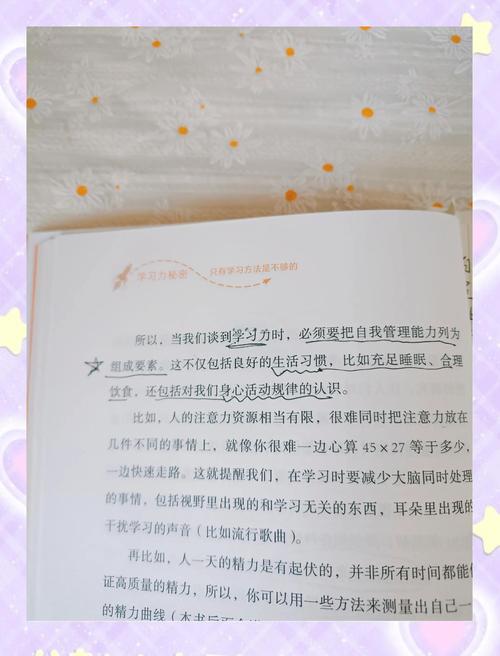 学习力秘密 只有学习方法是不够的
所以，当我们谈到学习力时，必须要把自我管理能力列为
组成要素。这不仅包括良好的生活习惯，比如充足睡眠、合理
饮食，还包括对我们身心活动规律的认识。
比如，人的注意力资源相当有限，很难同时把注意力放在
几件不同的事情上，就像你很难一边心算 45×27 等于多少，
一边快速走路。这就提醒我们，在学习时要减少大脑同时处理
的事情，包括视野里出现的和学习无关的东西，耳朵里出现的
干扰学习的声音（比如流行歌曲）。
再比如，人一天的精力是有起伏的，并非所有时间都能
证高质量的精力，所以，你可以用一些方法来测量出自己一
的精力曲线（本书后面会